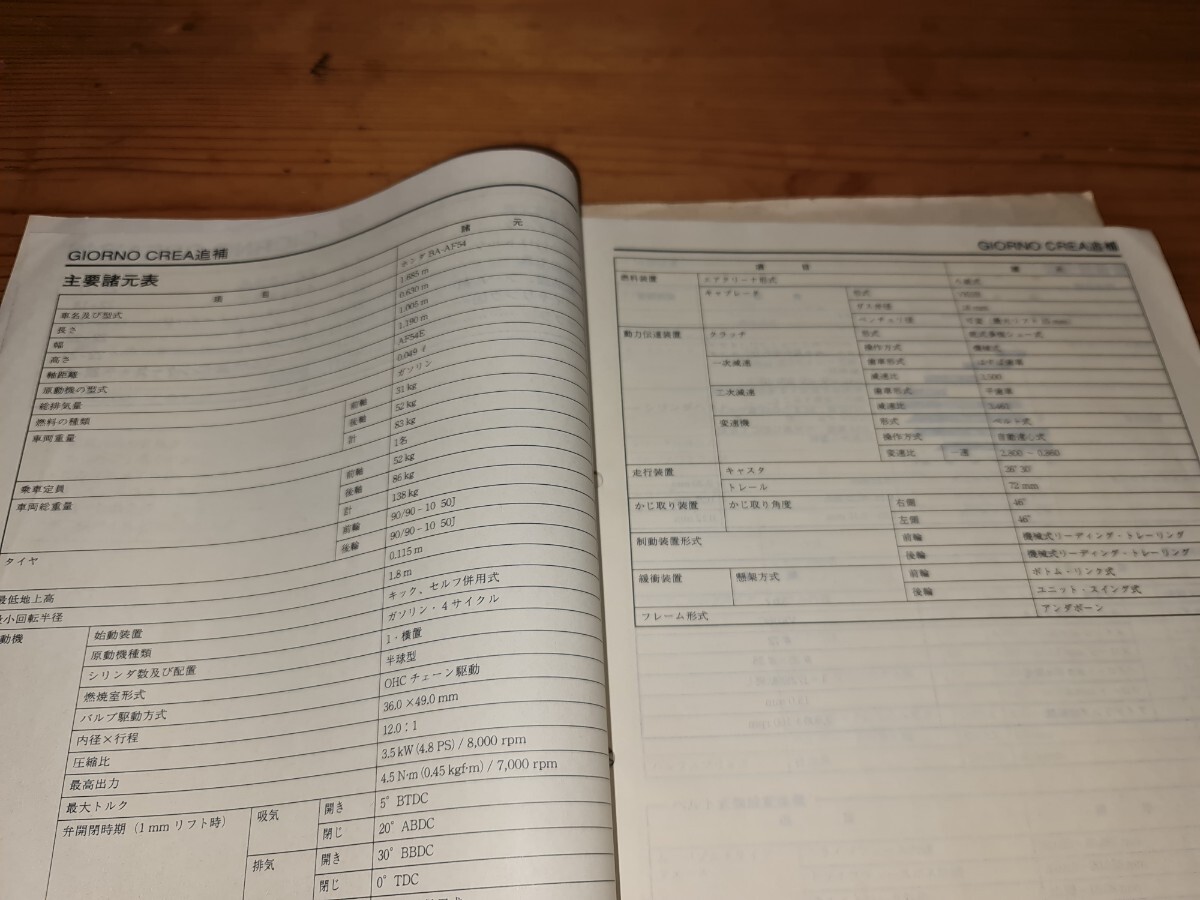 GIORNO CREA追補
主要諸元表
項 名 諸 元
車名及び型式 ホンダBA-AF54
長さ 1.685 m
幅 0.630 m
高さ 1.005 m
軸距離 1.190 m
原動機の型式 AF54E
総排気量 0.049 ℓ
燃料の種類 ガソリン
車両重量 前軸 31 kg
後軸 52 kg
計 83 kg
乗車定員 1名
車両総重量 前軸 52 kg
後軸 86 kg
計 138 kg
タイヤ 前輪 90/90-10 50J
後輪 90/90-10 50J
最低地上高 0.115 m
小回転半径 1.8 m
動機 始動装置 キック、セルフ併用式
原動機種類 ガソリン・4サイクル
シリンダ数及び配置 1・横置
燃焼室形式 半球型
バルブ駆動方式 OHC チェーン駆動
内径×行程 36.0×49.0 mm
圧縮比 12.0:1
最高出力 3.5 kW (4.8 PS) / 8,000 rpm
最大トルク 4.5 N·m (0.45 kgf·m) / 7,000 rpm
弁開閉時期(1 mm リフト時) 吸気 開き 5° BTDC
閉じ 20° ABDC
排気 開き 30° BBDC
閉じ 0° TDC
GIORNO CREA追補
燃料装置 エアクリーナ形式
キャブレータ 形式
ベンチュリ径
動力伝達装置 クラッチ 形式 乾式多板シュー式
操作方式 機械式
一次減速 歯車形式 はすば歯車
減速比
二次減速 歯車形式 平歯車
減速比
変速機 形式 ベルト式
操作方式 自動遠心式
変速比 一速 2.800 ~ 0.860
走行装置 キャスタ 26° 30′
トレール 72 mm
かじ取り装置 かじ取り角度 右側 46°
左側 46°
制動装置形式 前輪 機械式リーディング・トレーリング
後輪 機械式リーディング・トレーリング
緩衝装置 懸架方式 前輪 ボトム・リンク式
後輪 ユニット・スイング式
フレーム形式 アンダボーン